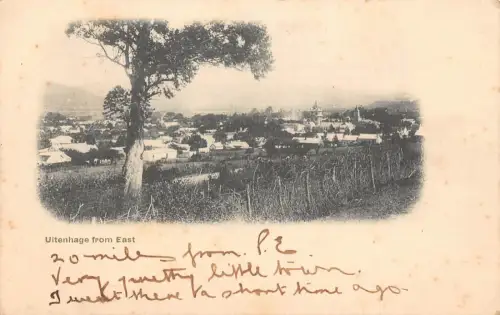 Uitenhage from East
20 miles from. P.E.
very pretty little town.
I went there a short time ago.